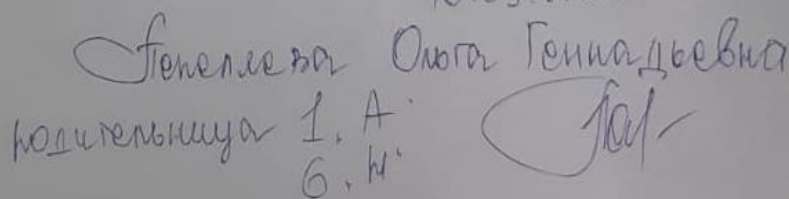 Пепеляева Ольга Геннадьевна
родительница 1. А.
6. И.